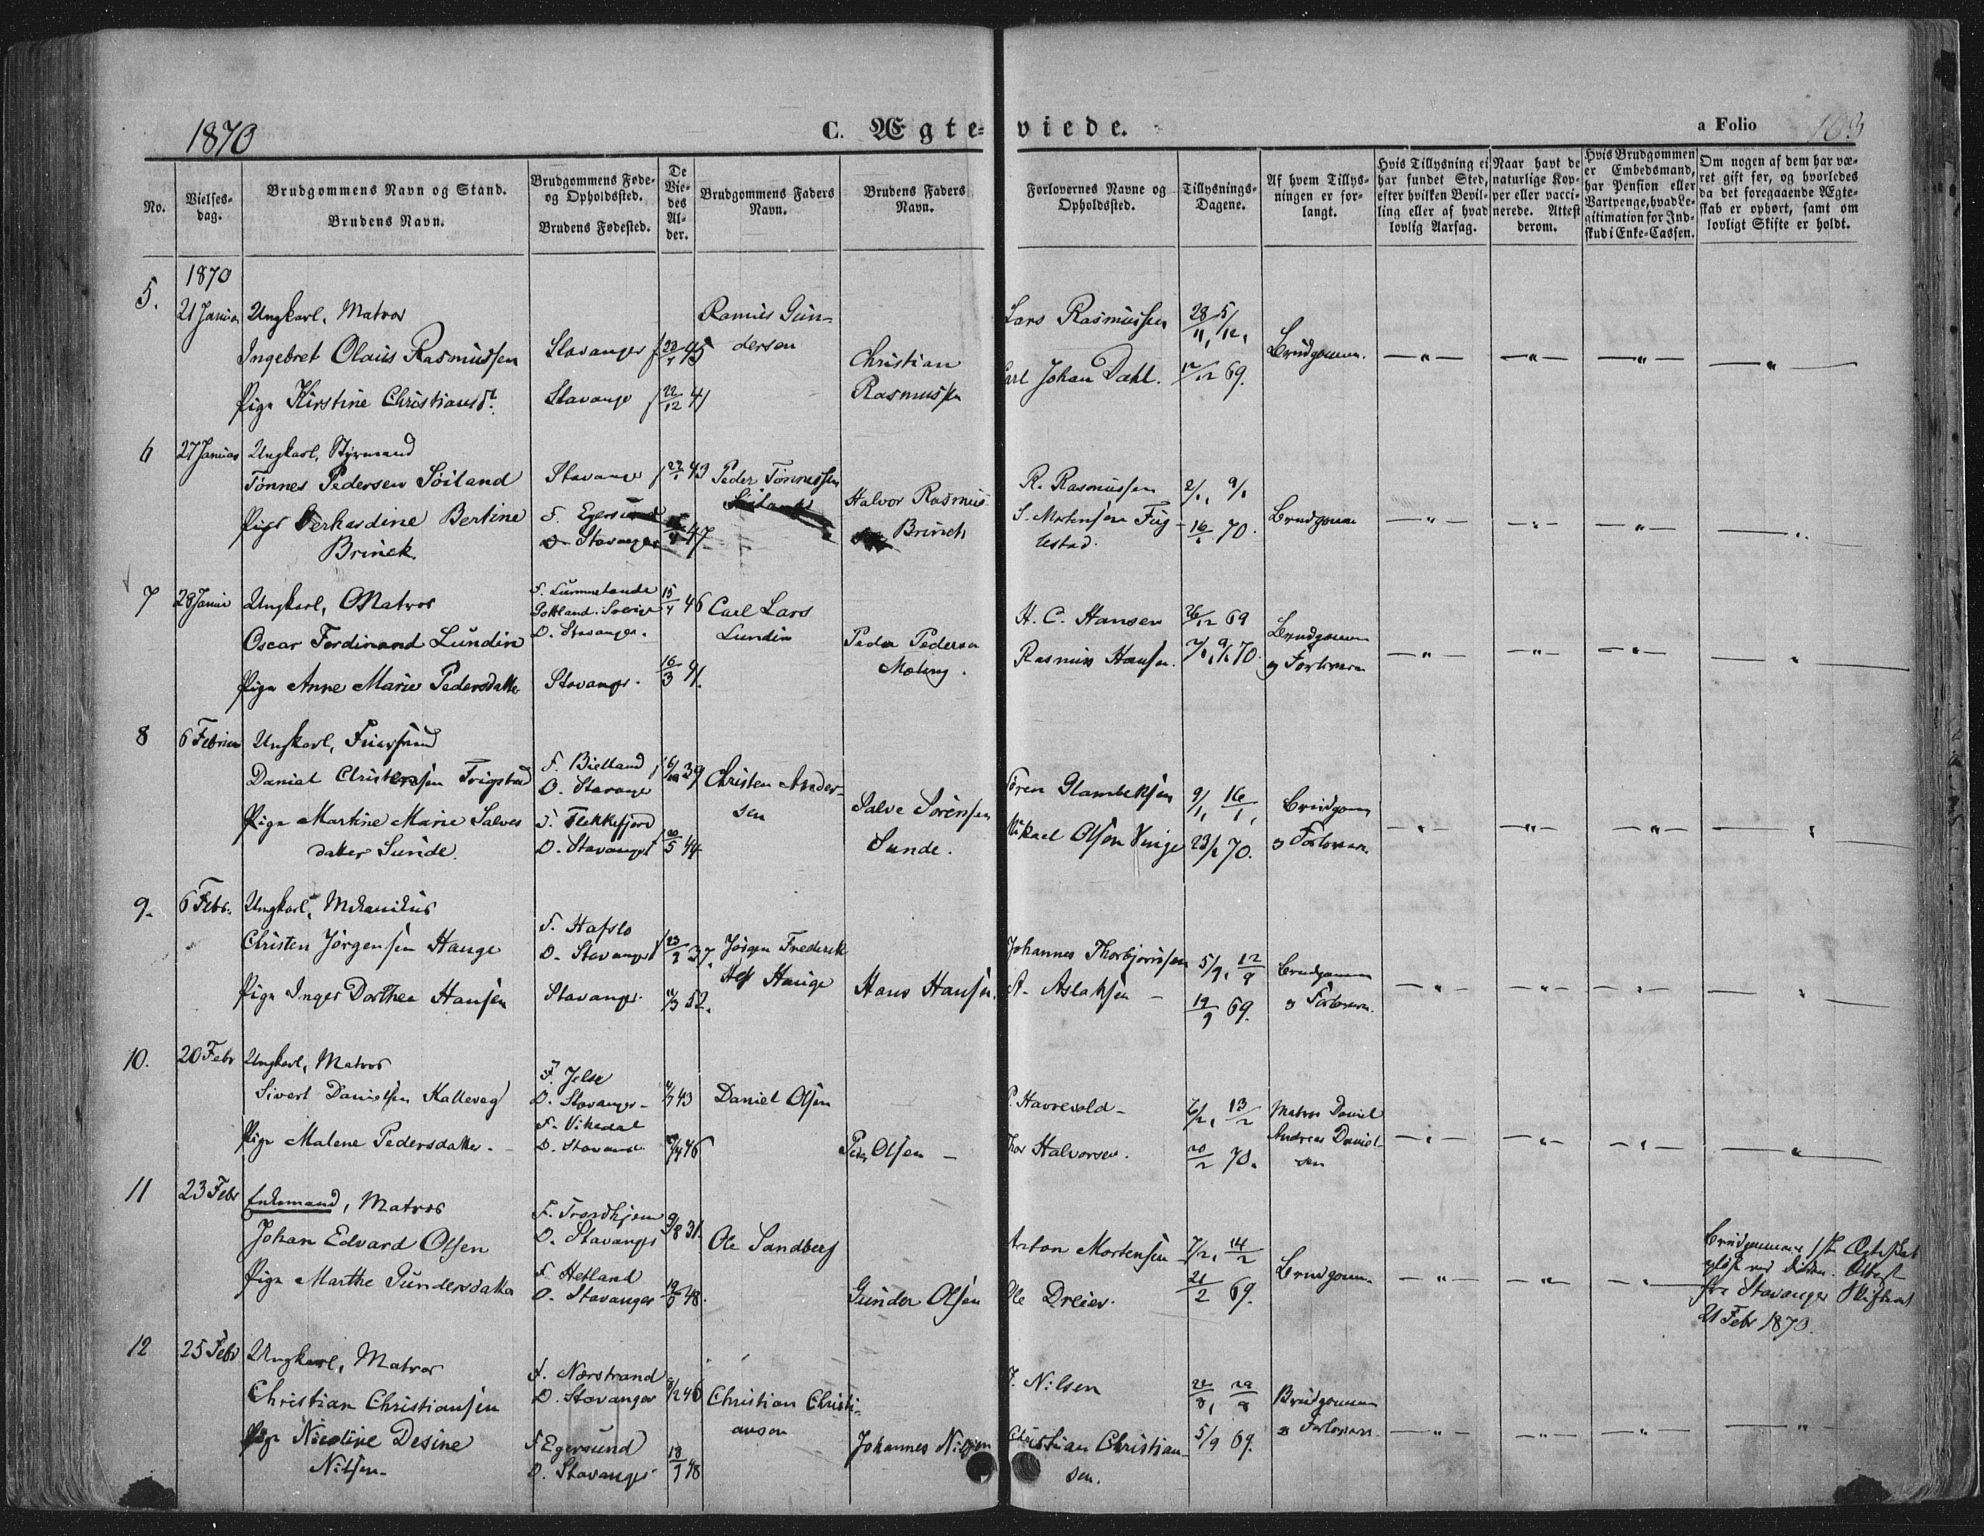 1870
C. Ægteviede.
a Folio 103
No.
Vielsesdag.
Brudgommens Navn og Stand.
Brudens Navn.
Brudgommens Føde- og Opholdssted.
Brudens Fødested.
De Viedes Alder.
Brudgommens Faders Navn.
Brudens Faders Navn.
Forlovernes Navne og Opholdssted.
Tillysnings-Dagene.
Af hvem Tillysningen er forlangt.
Hvis Tillysning ei har fundet Sted, efter hvilken Bevilling eller af hvad lovlig Aarsag.
Naar havt de naturlige Kopper eller vaccinerede. Attest derom.
Hvis Brudgommen er Embedsmand, har Pension eller Vartpenge, hvad Legitimation for Indskud i Enke-Cassen.
Om nogen af dem har været gift før, og hvorledes da det foregaaende Ægteskab er ophørt, samt om lovligt Skifte er holdt.
1870
5. 21 Januar Ungkarl, Matros Ramus Gun- Lars Rasmussen 28/11, 5/12,
Ingebret Olaus Rasmussen Stavanger 45 dersen Christian Brudgommen
Pige Kirstine Christiansdt. Stavanger 22/12 41 Rasmussen Carl Johan Dahl. 12/12 69.
6 27 Januar Ungkarl, Styrmand
Tönnes Pedersen Söiland Stavanger 43 Peder Tönnessen R. Rasmussen 2/1, 9/1
Pige Gerhardine Bertine F. Egersund 47 Halvor Rasmus S. Mortensen Fug- 16/1 70. Brudgommen
Brinck O. Stavanger Brinch lestad.
7 28 Januar Ungkarl, Matros F. Lummelunda 15/7 46 Carl Lars H. C. Hansen 26/12 69 Brudgommen
Gottland. Sverige
Oscar Ferdinand Lundin O. Stavanger. Lundin Peder Pedersen Rasmus Hansen. 2/1, 9/1 70. og Forloveren
Pige Anne Marie Pedersdatter Stavanger. 16/3 41. Moberg.
8 6 Februar Ungkarl,
Daniel Christensen Trigstad F. Bielland O. Stavanger 39 Christen Ander- Sören Glambeksen 9/1, 16/1, Brudgommen
Pige Martine Marie Salves F. Flekkefjord sen Salve Sörensen Mikael Olsen Vinje 23/1 70. og Forloveren
datter Sunde. O. Stavanger 20/5 44 Sunde.
9. 6 Febr. Ungkarl, Mekanikus F. Hafslo
Christen Jörgensen Hauge O. Stavanger 37. Jörgen Frederik Johannes Thorbjörnsen 5/9, 12/9 Brudgommen
Pige Inger Dorthea Hansen Stavanger 52. Hauge Hans Hansen. A. Aslaksen 19/9 69. og Forloveren.
10. 20 Febr Ungkarl, Matros F. Jelse
Sivert Danielsen Kalleveg O. Stavanger 43 Daniel Olsen P. Havrevold 6/2, 13/2 Matros Daniel
F. Vikedal Andreas Daniel-
Pige Malene Pedersdatter. O. Stavanger 46 Peder Olsen Thor Halvorsen. 20/2 70. sen
11 23 Febr Enkemand, Matros F. Trondhjem 9/8 31.
Johan Edvard Olsen O. Stavanger Ole Sandberg Anton Mortensen 7/2, 14/2 Brudgommen
Pige Marthe Gundersdatter F. Hetland O. Stavanger 48. Gunder Olsen Ole Dreier. 21/2 69.
Brudgommens 1ste Ægteskab
oplöst ved Döden. Attest
fra Stavanger Skifteret
21 Febr 1870.
12 25 Febr Ungkarl, Matros F. Nærstrand
Christian Christiansen O. Stavanger 46 Christian Christi- J. Nilsen 22/8, 29/8 Brudgommen
ansen
Pige Nicoline Desine F. Egersund Johannes Nilsen Christian Christian- 5/9 69. og Forloveren
Nilsen O. Stavanger 48 sen.